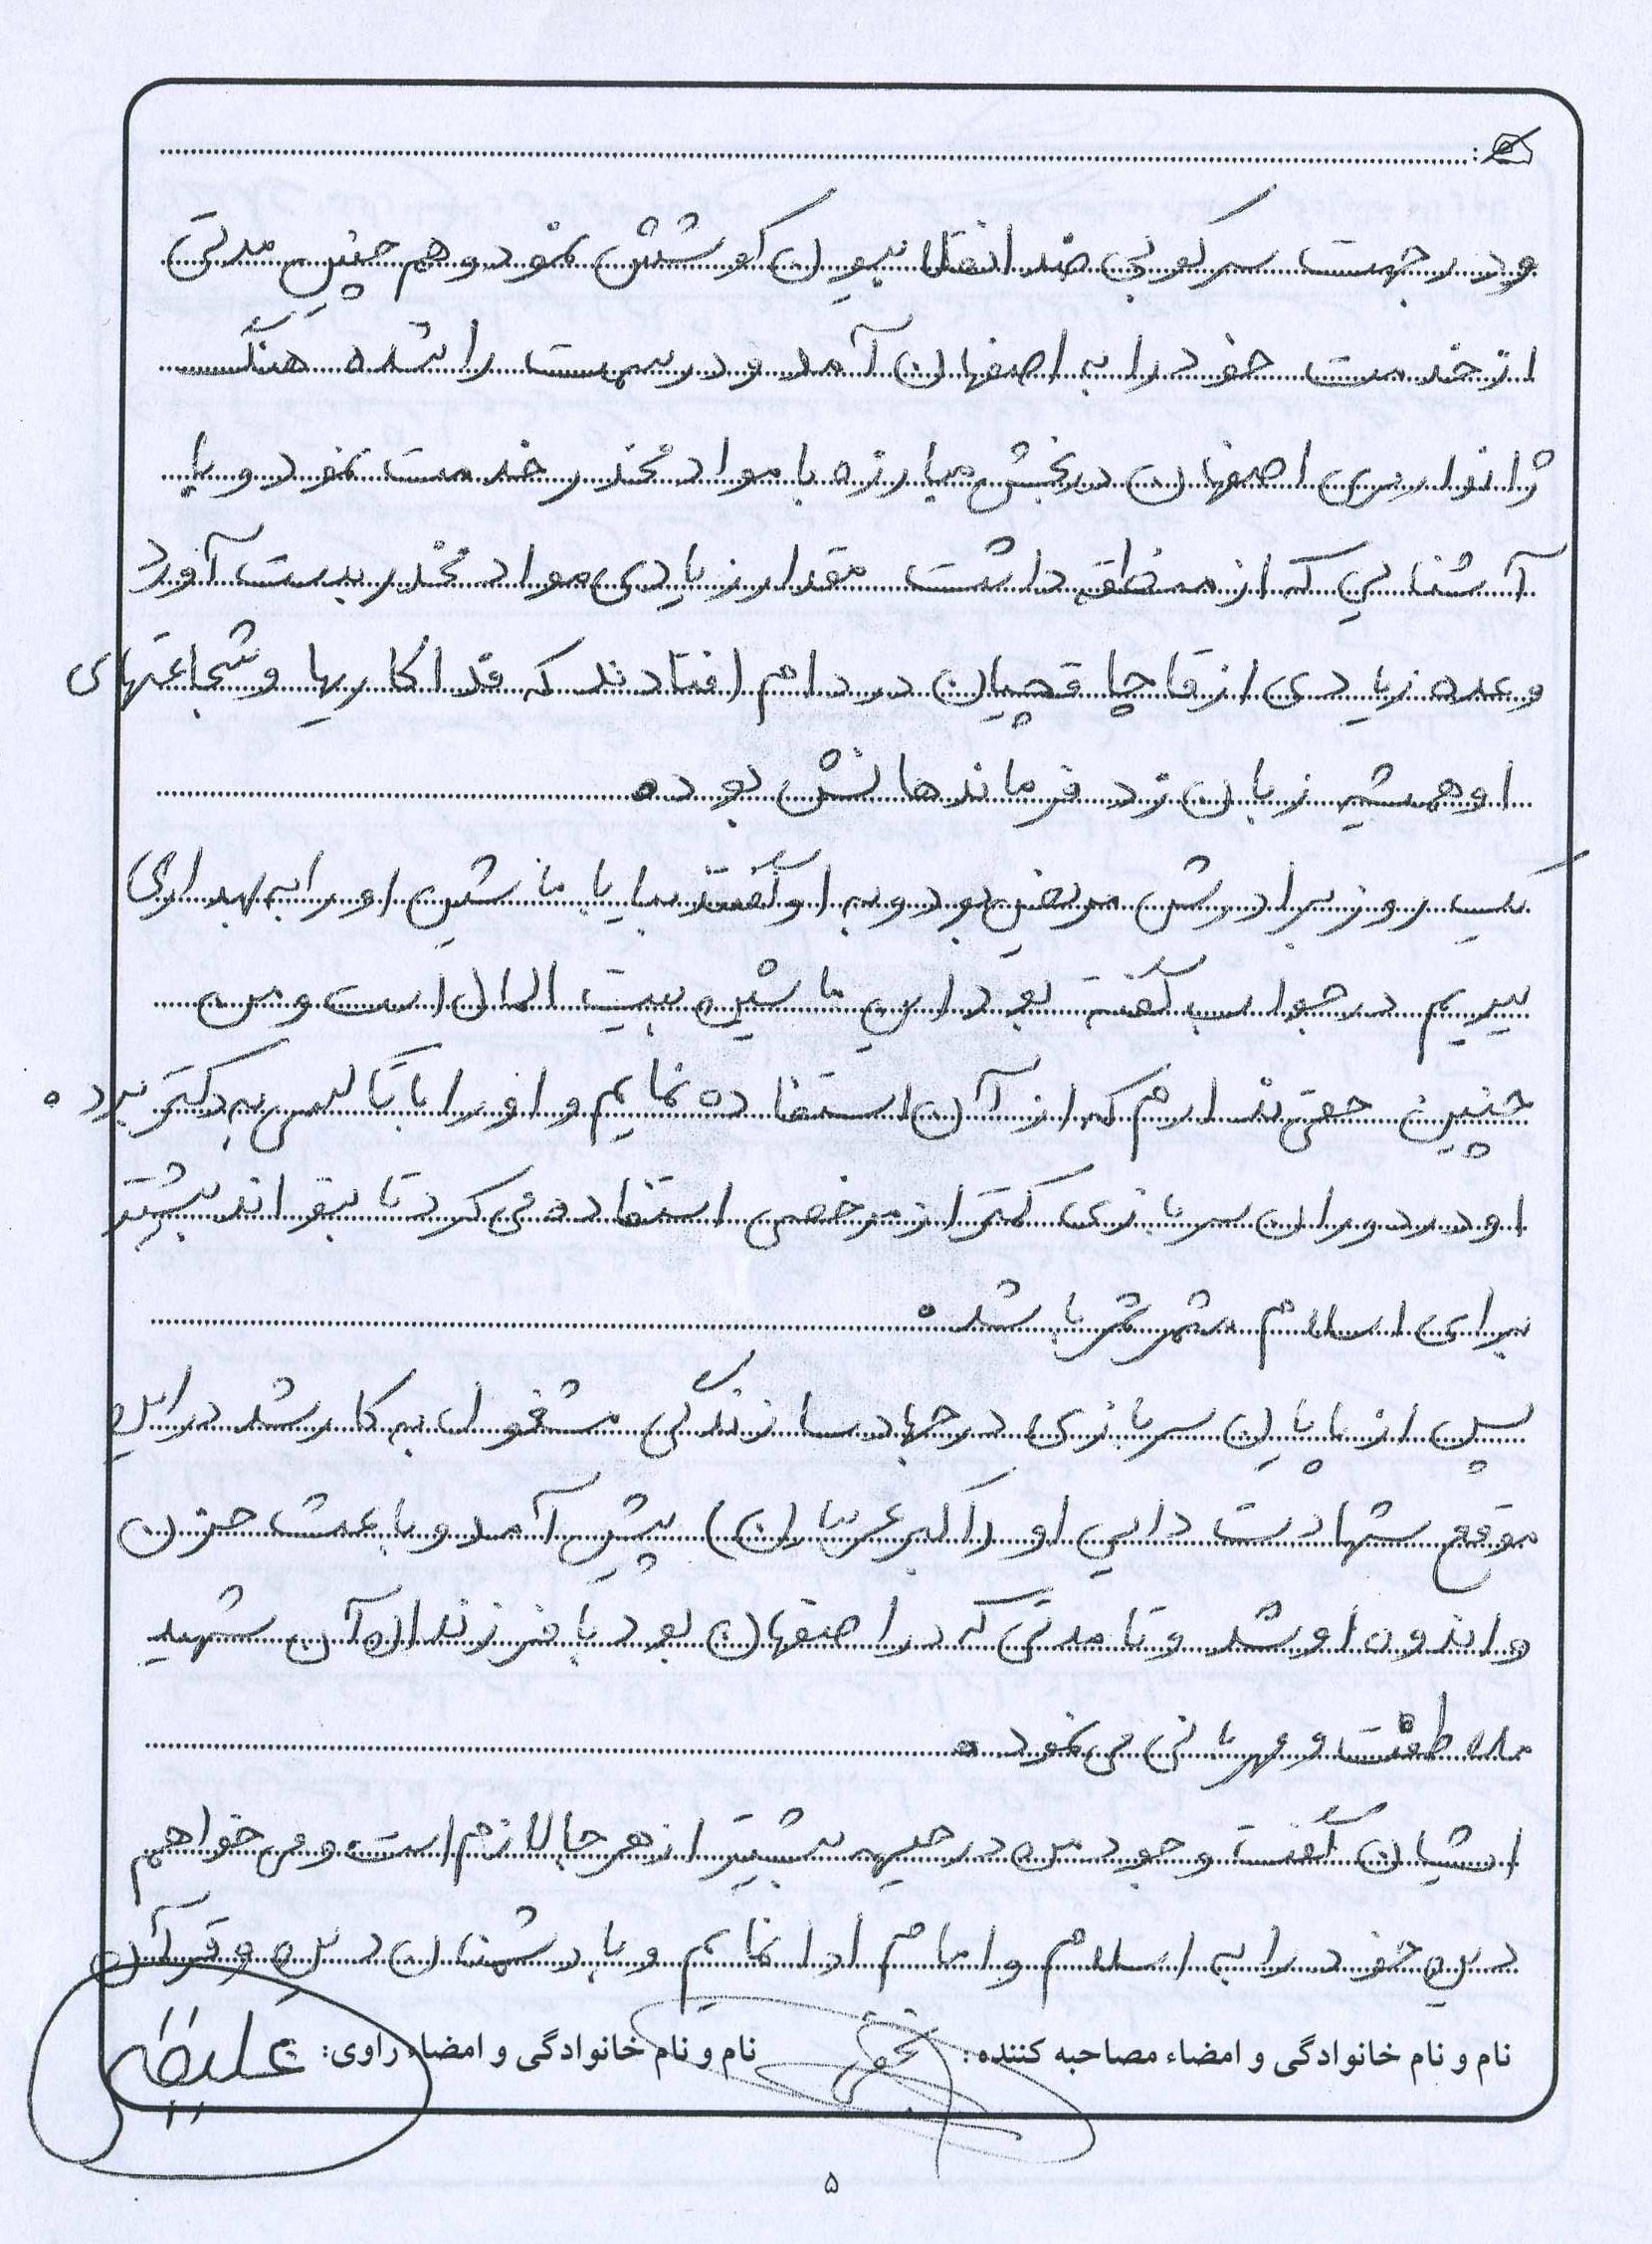 ودر جهت سرکوبی ضد انقلابیون کوشش نمود و هم چنین مدتی
از خدمت خود را به اصفهان آمد و در سمت راننده هنگ
ژاندارمری اصفهان در بخش مبارزه با مواد مخدر خدمت نمود و با
آشنایی که از منطقه داشت مقدار زیادی مواد مخدر بدست آورد
و عده زیادی از قاچاقچیان در دام افتادند که فداکاریها و شجاعتهای
او همیشه زبان زد فرماندهانش بوده
یک روز برادرش مریض بود و به او گفتند بیا با ماشین او را به بهداری
ببریم در جواب گفته بود این ماشین بیت المال است و من
چنین حقی ندارم که از آن استفاده نمایم و او را با تاکسی به دکتر برد.
او در دوران سربازی کمتر از مرخصی استفاده می کرد تا بتواند بیشتر
برای اسلام مثمر ثمر باشد.
پس از پایان سربازی در جهاد سازندگی مشغول به کار شد در این
موقع شهادت دایی او (اکبر عریان) پیش آمد و باعث حزن
و اندوه او شد و تا مدتی که در اصفهان بود با فرزندان آن شهید
ملاطفت و مهربانی می نمود.
ایشان گفت وجود من در جبهه بیشتر از هر جا لازم است و می خواهم
دین خود را به اسلام و امام ادا نمایم و با دشمنان دین و قرآن
نام و نام خانوادگی و امضاء مصاحبه کننده: نام و نام خانوادگی و امضاء راوی:
۵